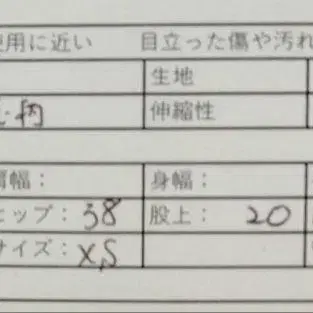 使用に近い 目立った傷や汚れ
生地
柄 伸縮性
肩幅： 身幅：
ヒップ： 38 股上： 20
サイズ： XS